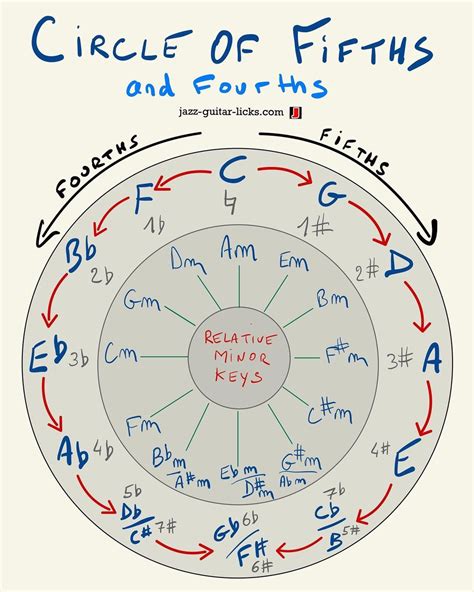 CIRCLE OF FIFTHS
and Fourths
jazz-guitar-licks.com
FOURTHS
FIFTHS
C
♮
G
1#
D
2#
A
3#
E
4#
Cb
7b
B
5#
Gb
6b
F#
6#
Db
5b
C#
7#
Ab
4b
Eb
3b
Bb
2b
F
1b
Am
Em
Bm
F#m
C#m
G#m
Abm
Ebm
D#m
Bbm
A#m
Fm
Cm
Gm
Dm
RELATIVE
MINOR
KEYS